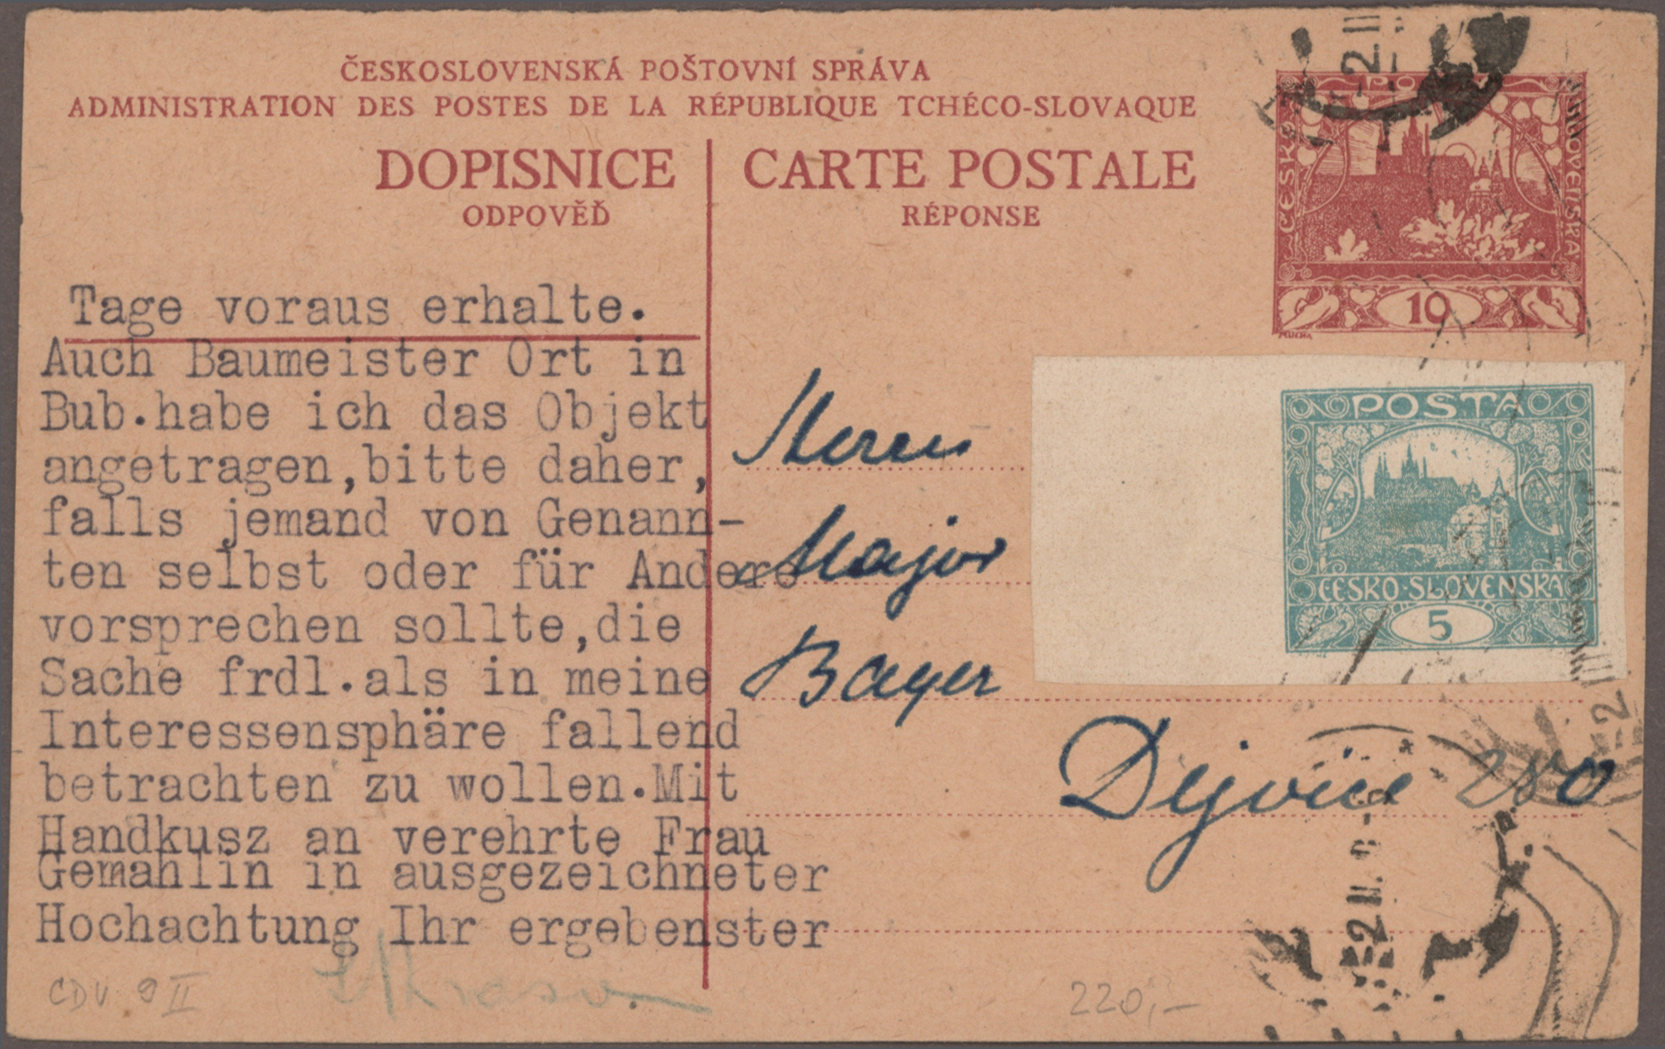 ČESKOSLOVENSKÁ POŠTOVNÍ SPRÁVA
ADMINISTRATION DES POSTES DE LA RÉPUBLIQUE TCHÉCO-SLOVAQUE
DOPISNICE
ODPOVĚĎ
CARTE POSTALE
RÉPONSE
ČESKO
SLOVENSKÁ
10
MUCHA
Tage voraus erhalte.
Auch Baumeister Ort in
Bub.habe ich das Objekt
angetragen,bitte daher,
falls jemand von Genann-
ten selbst oder für Andere
vorsprechen sollte,die
Sache frdl.als in meine
Interessensphäre fallend
betrachten zu wollen.Mit
Handkusz an verehrte Frau
Gemahlin in ausgezeichneter
Hochachtung Ihr ergebenster
Herrn
Major
Bayer
Dejvice 280
POSTA
ČESKO·SLOVENSKA
5
CDV 9 II
220,-